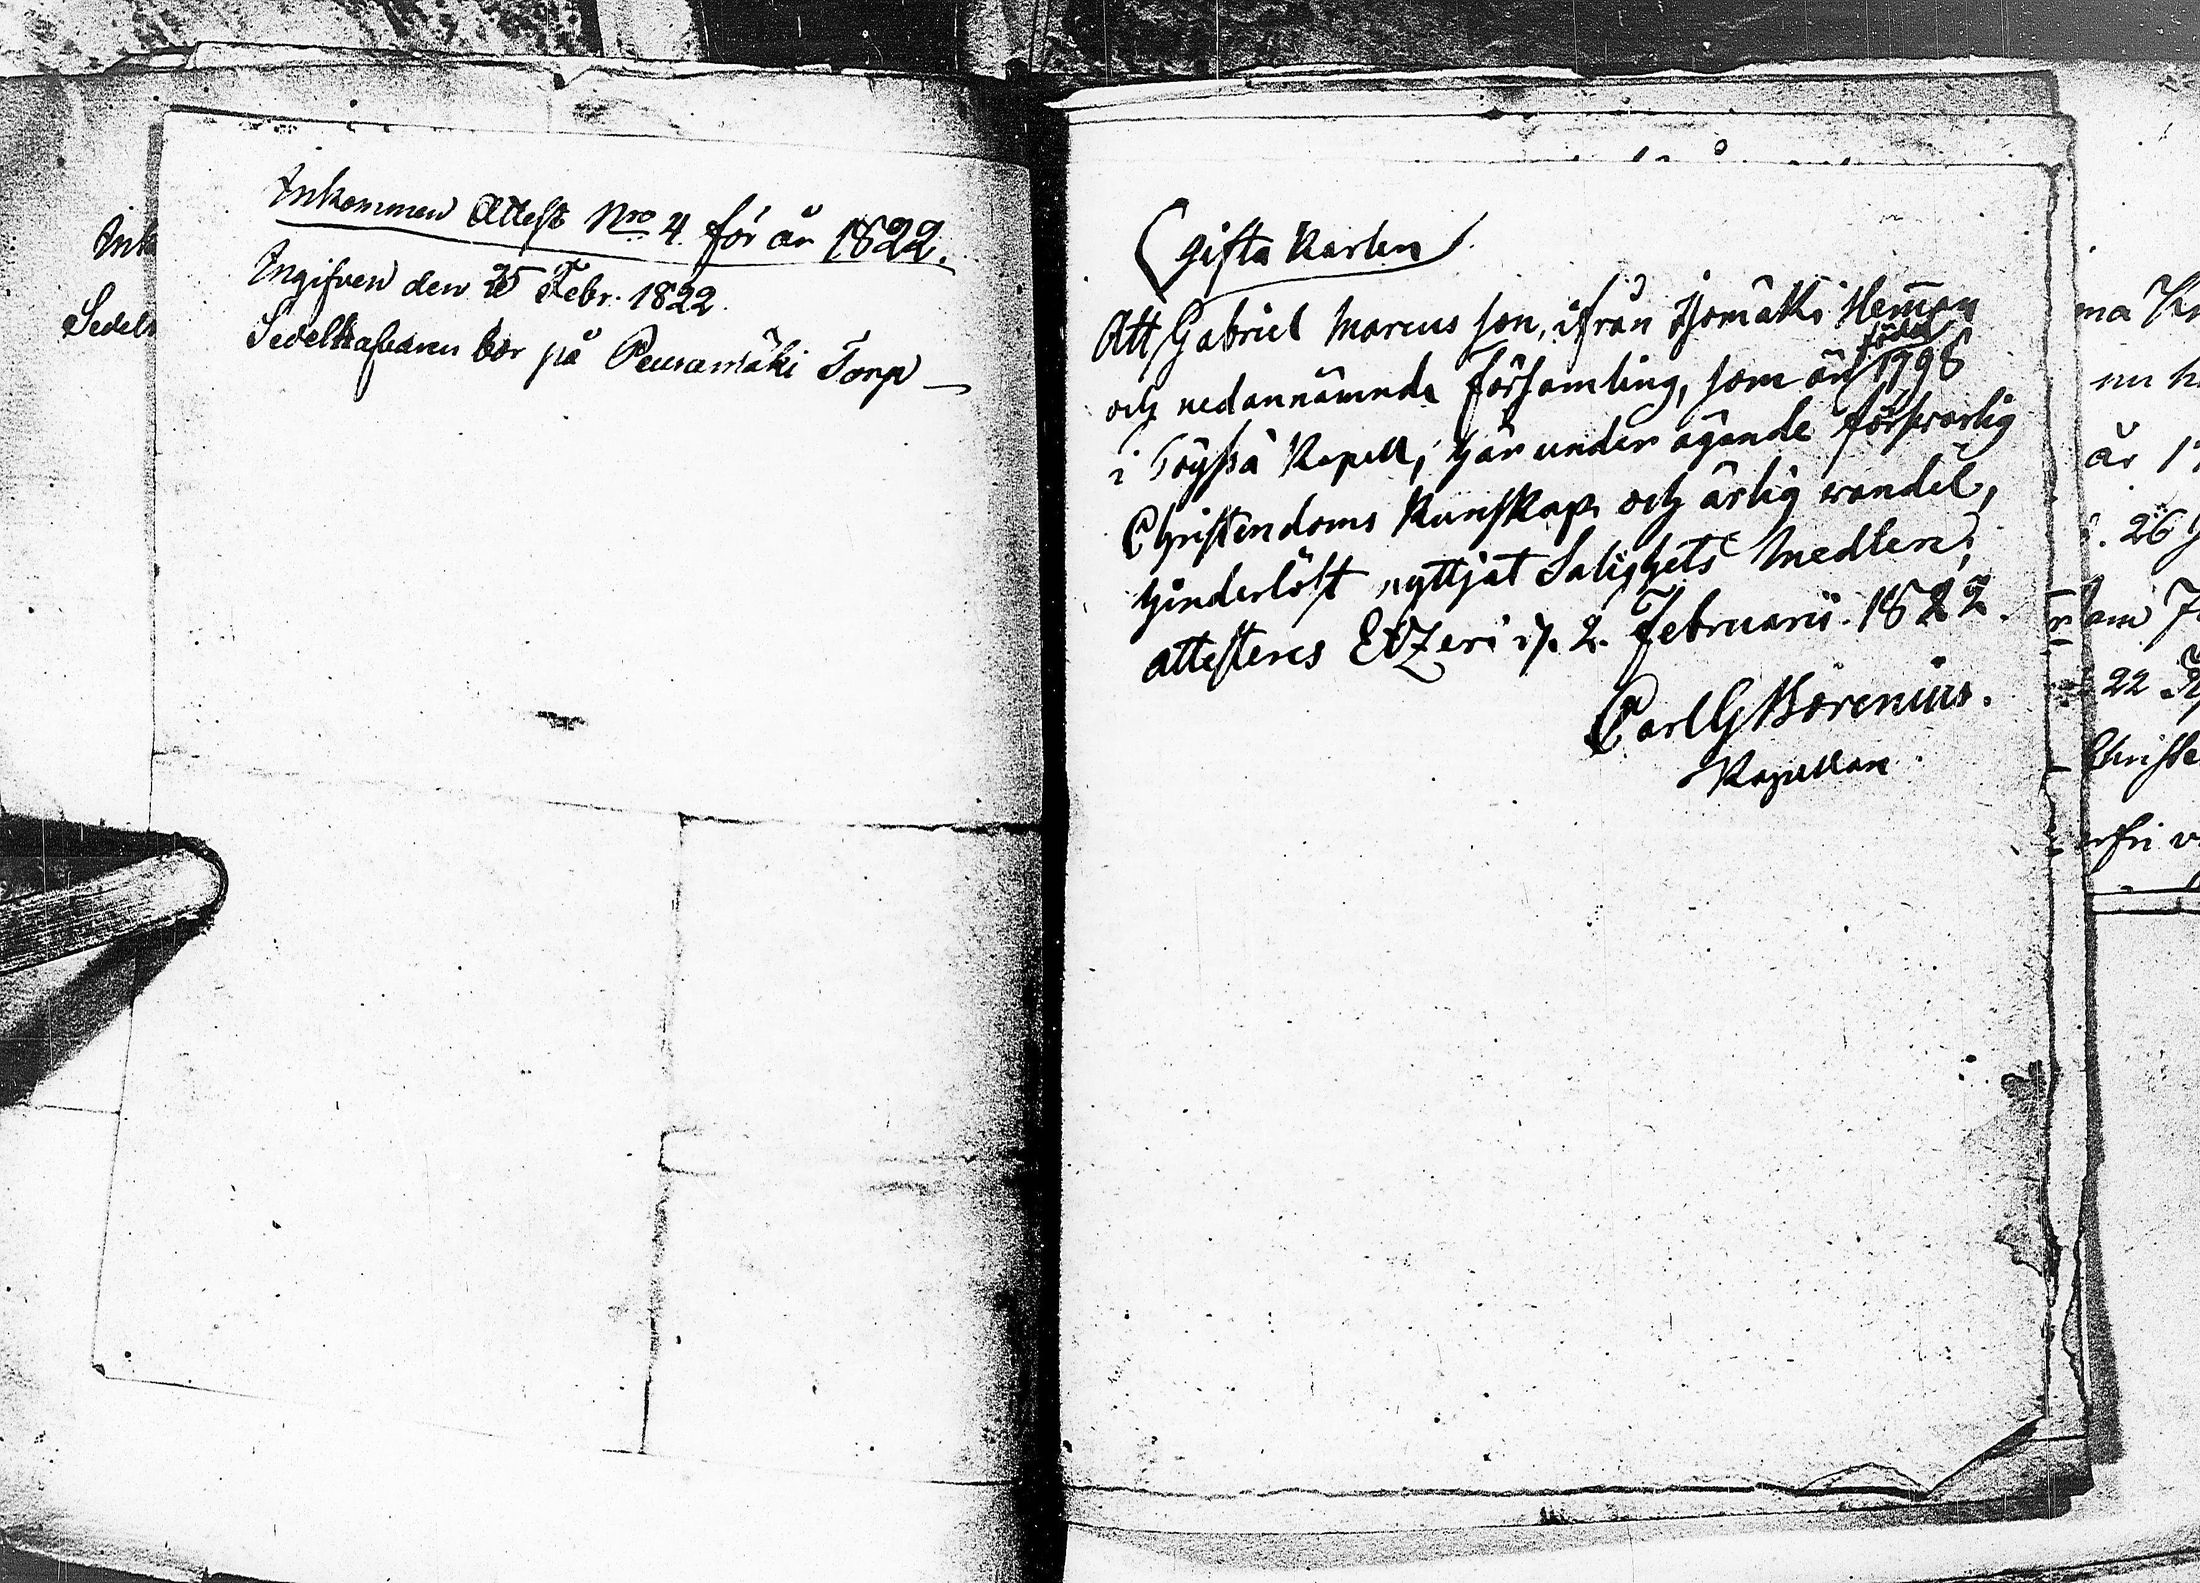 Inkommen Attest Nro 4. för år 1822.
Ingifven den 25 Febr. 1822.
Sedelhafvaren bor på Peuramäki Torp
Gifta Karlen
Att Gabriel Marcus son, ifrån Isomäki Hemman
och nedannämnde Församling, som är född 1798
i Töysä Kapell, har under ägande försvarlig
Christendoms Kunskap och ärlig vandel,
hinderlöst nyttjat Salighets Medlen,
attesteras Etzeri d. 2. Februarii. 1822.
Carl G Borenius.
Kapellan
Ink
Sedelh
26
22